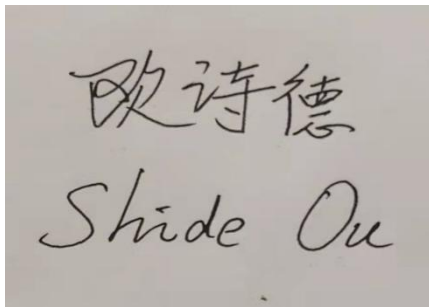 欧诗德
Shide Ou